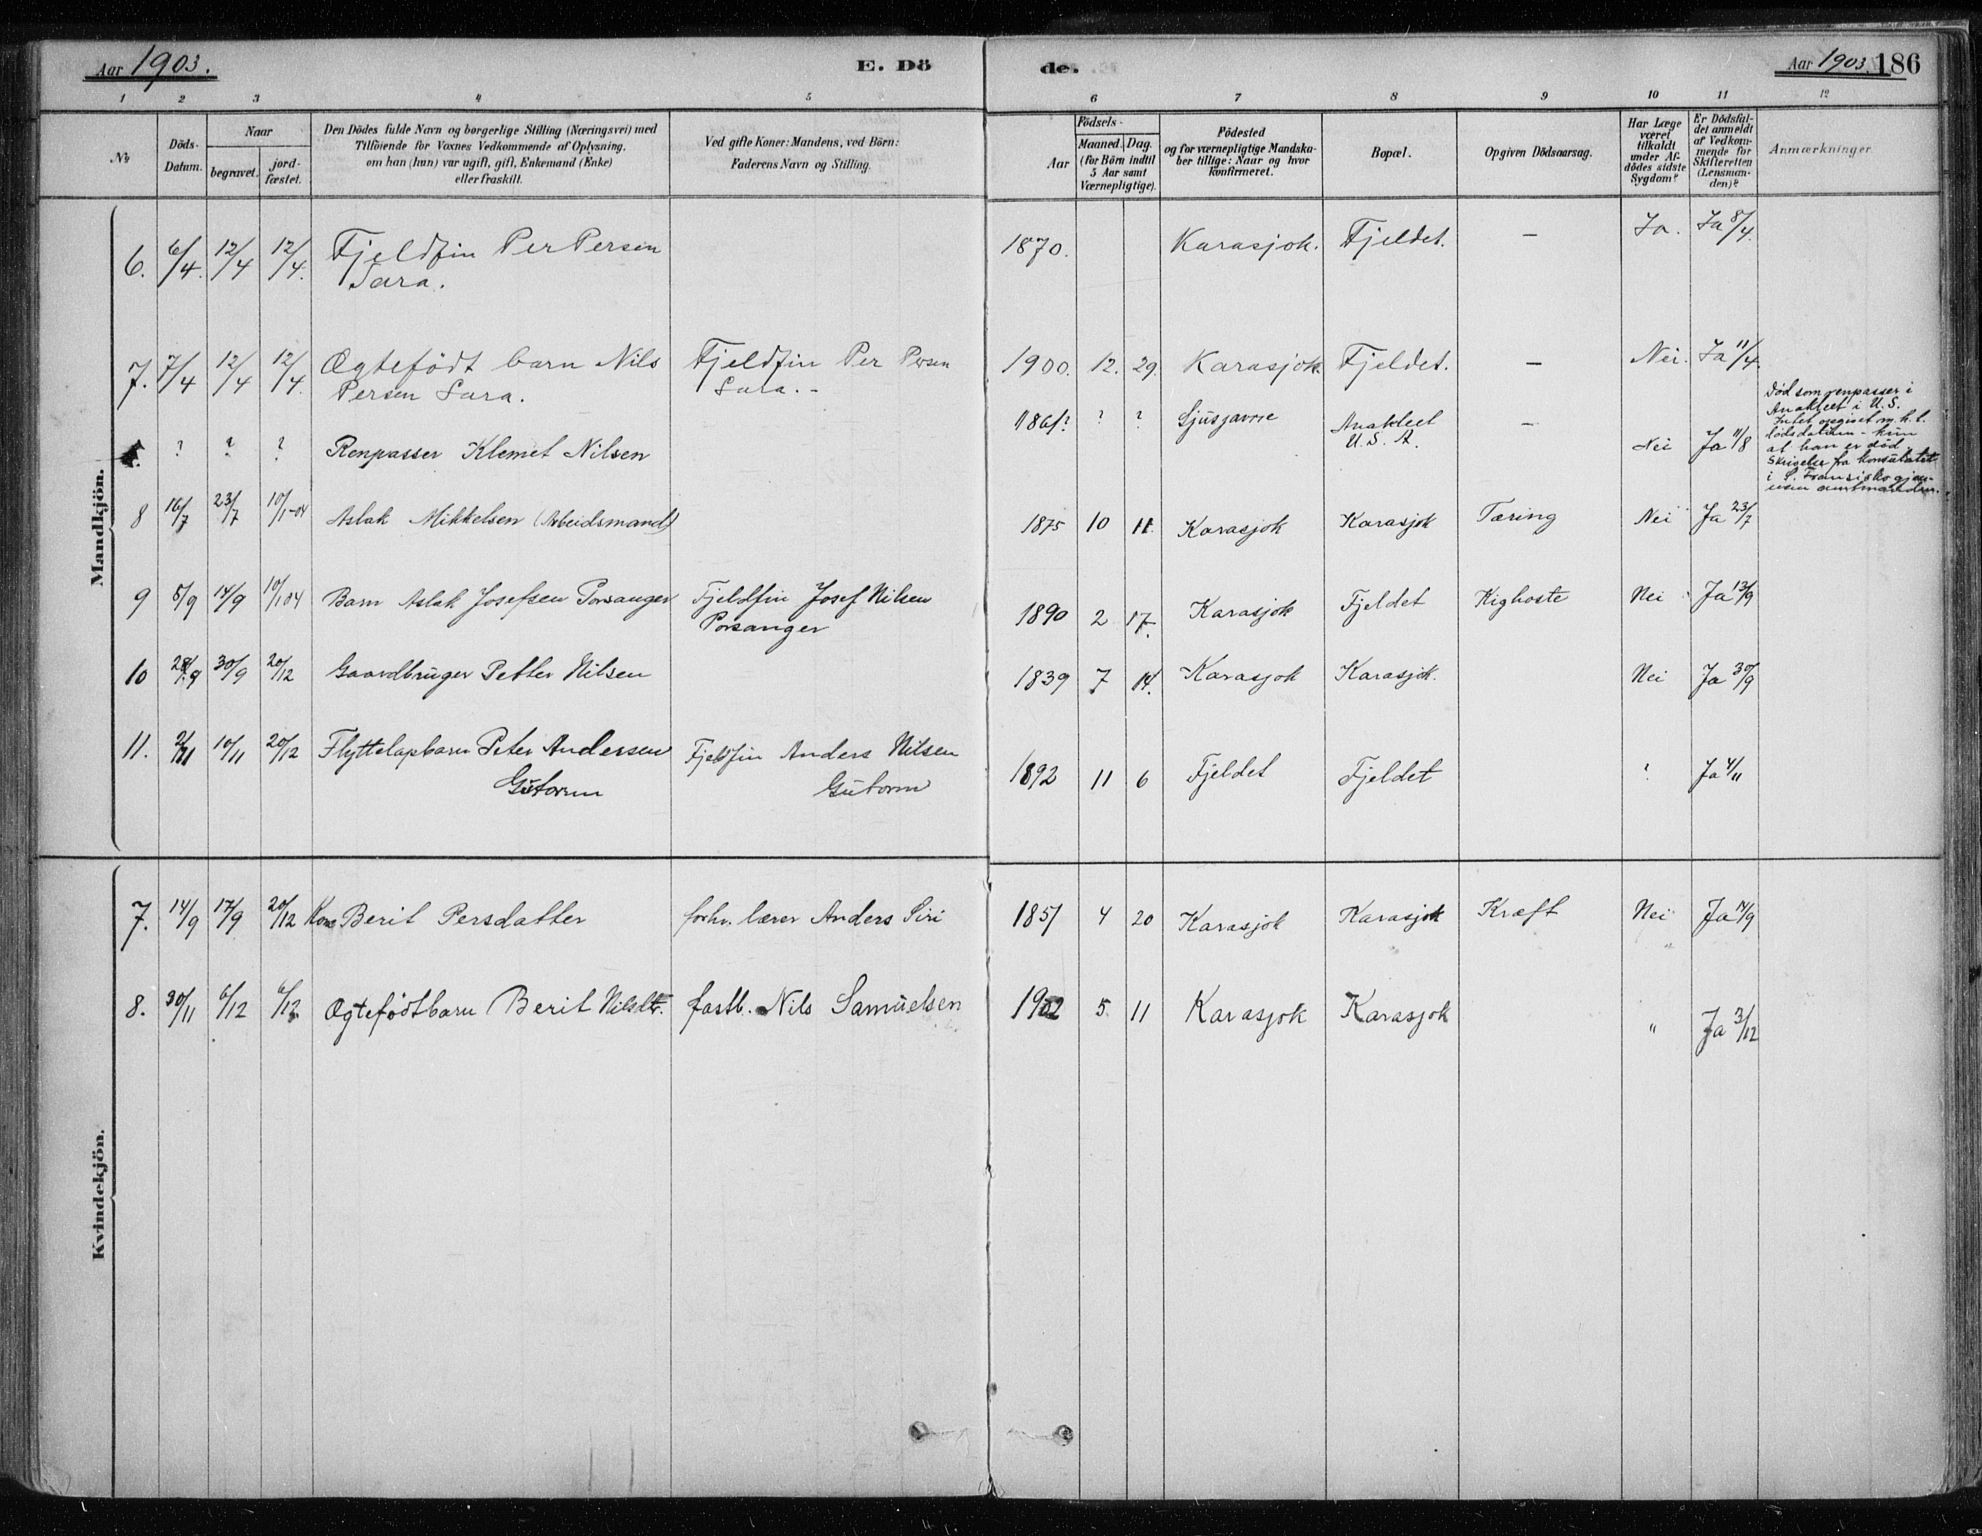 Aar 1903.
E. Dö
de.
Aar 1903. 186
1 2 3 4 5 6 7 8 9 10 11 12
No
Döds-
Datum.
Naar
begravet.
jord-
fæstet.
Den Dödes fulde Navn og borgerlige Stilling (Næringsvei) med
Tilföiende for Voxnes Vedkommende af Oplysning,
om han (hun) var ugift, gift, Enkemand (Enke)
eller fraskilt.
Ved gifte Koner: Mandens, ved Börn:
Faderens Navn og Stilling.
Födsels-
Aar
Maaned.
Dag.
(for Börn indtil
5 Aar samt
Værnepligtige).
Födested
og for værnepligtige Mandska-
ber tillige: Naar og hvor
konfirmeret.
Bopæl.
Opgiven Dödsaarsag.
Har Læge
været
tilkaldt
under Af-
dödes sidste
Sygdom?
Er Dödsfal-
det anmeldt
af Vedkom-
mende for
Skifteretten
(Lensman-
den)?
Anmærkninger
Mandkjön.
6. 6/4. 12/4 12/4. Fjeldfin Per Persen 1870. Karasjok. Fjeldet. – Ja. Ja 8/4.
Sara.
7. 7/4 12/4 12/4. Ægtefödt barn Nils Fjeldfin Per Persen 1900. 12. 29. Karasjok. Fjeldet. – Nei. Ja 11/4.
Persen Sara. Sara. –
? ? ? Renpasser Klemet Nilsen ? ? Sjusjavrre U. S. A. – Nei Ja 11/8
Död som renpasser i
i U. S.
Intet opgivet m. h. t.
dødsdatoen – kun
at han er död.
Skrivelse fra konsulatet
i S. Fransisko gjen-
nem amtmanden.
8 16/7 23/7 10/1-04 Aslak Mikkelsen (Arbeidsmand) 1875 10 11. Karasjok Karasjok Tæring Nei Ja 23/7
9 5/9 14/9 10/1 04 Barn Aslak Josefsen Porsanger Fjeldfin Josef Nilsen 1890 2 17. Karasjok Fjeldet Kighoste Nei Ja 13/9
Porsanger
10 30/9 20/12 Gaardbruger Petter Nilsen 1839 7 14. Karasjok Karasjok. Nei Ja 30/9
11. 10/11 20/12 Flyttelapbarn Peter Andersen Fjeldfin Anders Nilsen 1892 11 6 Fjeldet Fjeldet ? Ja 4/11
Guttorm Guttorm
Kvindekjön.
7. 14/9 17/9 20/12 Kone Berit Persdatter forhv. lærer Anders Siri 1857 4 20 Karasjok Karasjok Kræft Nei Ja
8. 30/11 6/12 6/12 Ægtefödtbarn Berit Nilsdtr. fastb. Nils Samuelsen 1902 5 11 Karasjok Karasjok " Ja 3/12